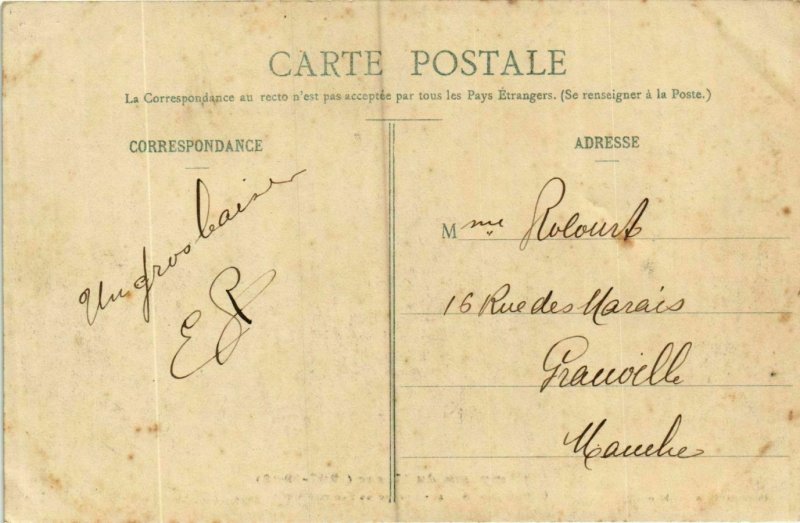 CARTE POSTALE
La Correspondance au recto n'est pas acceptée par tous les Pays Étrangers. (Se renseigner à la Poste.)
CORRESPONDANCE
Un gros baiser
ER
ADRESSE
Mme Rolourt
16 Rue des Marais
Granville
Manche